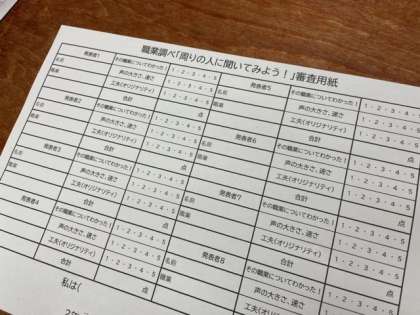 職業調べ「周りの人に聞いてみよう！」審査用紙
発表者1 その職業についてわかった！ 1・2・3・4・5
名前 声の大きさ、速さ 1・2・3・4・5
職業 工夫(オリジナリティ) 1・2・3・4・5
合計 点
発表者2 その職業についてわかった！ 1・2・3・4・5
名前 声の大きさ、速さ 1・2・3・4・5
職業 工夫(オリジナリティ) 1・2・3・4・5
合計 点
発表者3 その職業についてわかった！ 1・2・3・4・5
名前 声の大きさ、速さ 1・2・3・4・5
職業 工夫(オリジナリティ) 1・2・3・4・5
合計 点
発表者4 その職業についてわかった！ 1・2・3・4・5
声の大きさ、速さ 1・2・3・4・5
工夫(オリジナリティ) 1・2・3・4・5
合計 点
発表者5 その職業についてわかった！ 1・2・3・4・5
名前 声の大きさ、速さ 1・2・3・4・5
職業 工夫(オリジナリティ) 1・2・3・4・5
合計 点
発表者6 その職業についてわかった！ 1・2・3・4・5
名前 声の大きさ、速さ 1・2・3・4・5
職業 工夫(オリジナリティ) 1・2・3・4・5
合計 点
発表者7 その職業についてわかった！ 1・2・3・4・5
名前 声の大きさ、速さ 1・2・3・4・5
職業 工夫(オリジナリティ) 1・2・3・4・5
合計 点
発表者8 その職業についてわかった！
名前 声の大きさ、速さ
職業 工夫(オリジナリティ)
私は(